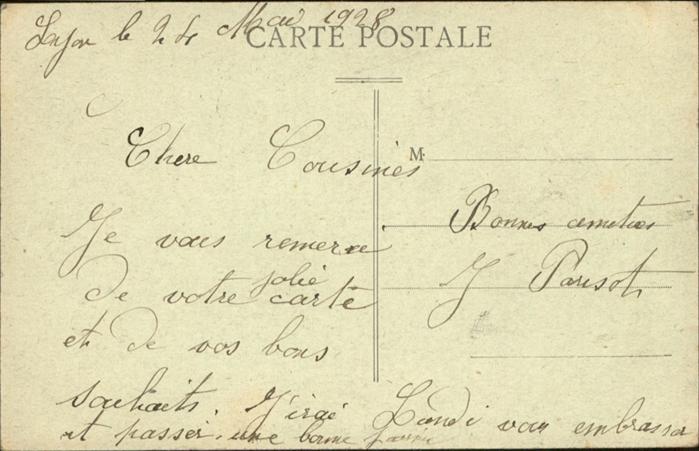 Lyon le 24 Mai 1928
CARTE POSTALE
Chere Cousines
Je vous remercie
de votre jolie carte
et de vos bons
souhaits. J'irai Lundi vous embrasser
et passer une bonne
M.
Bonnes amities
J Parisot